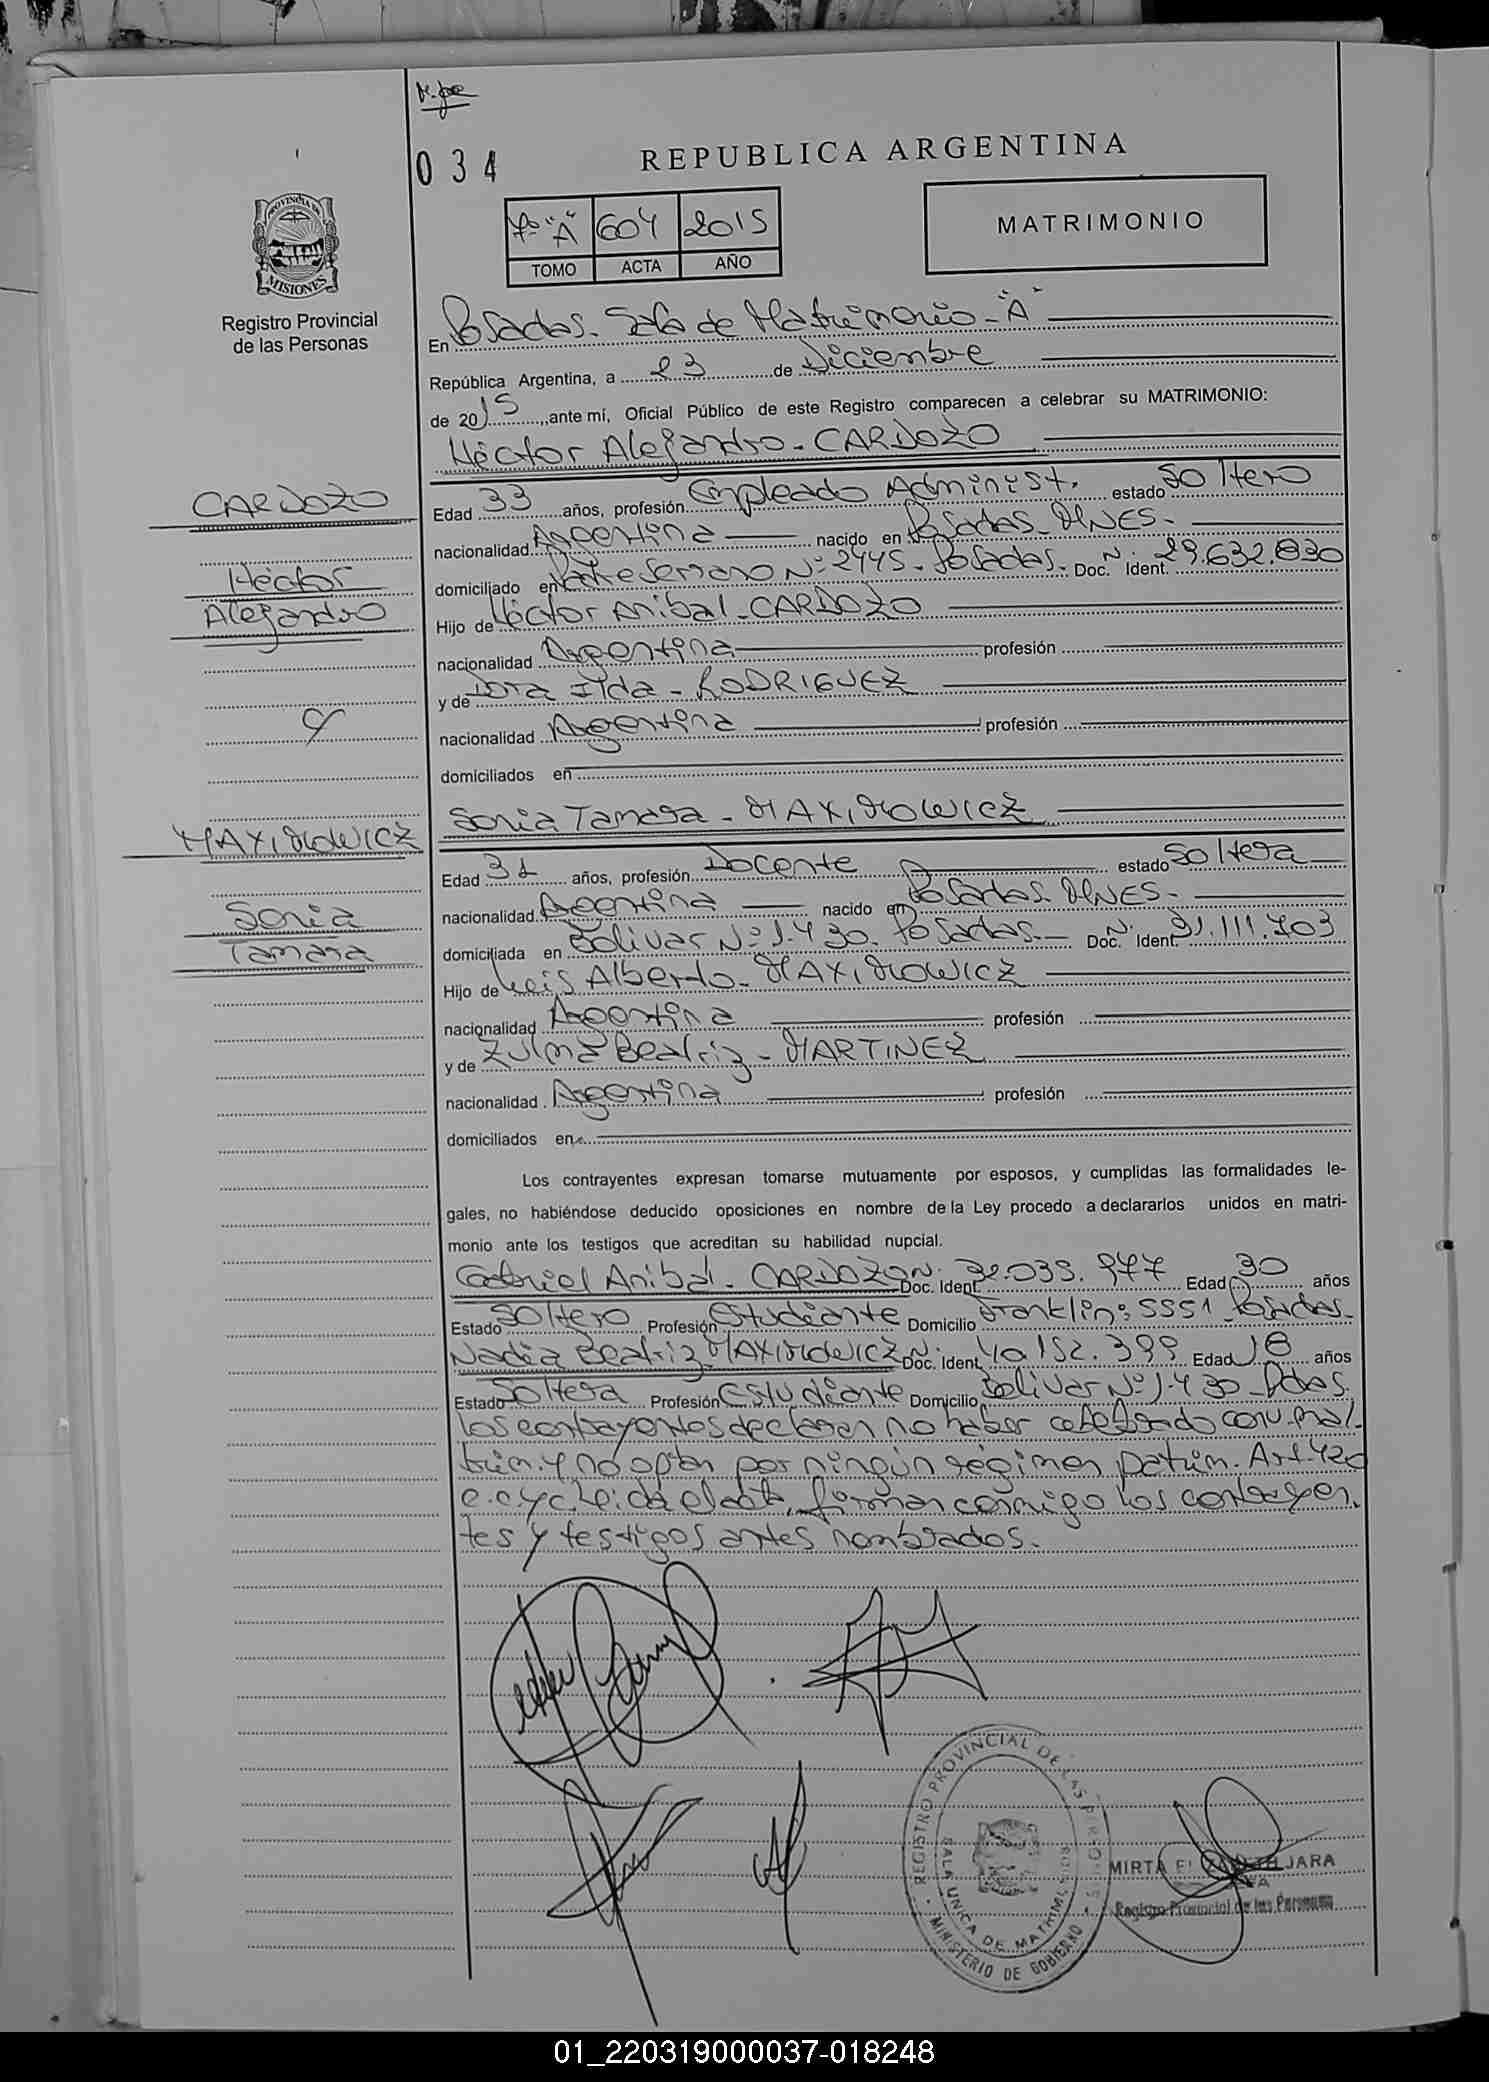 034
REPUBLICA ARGENTINA
PROVINCIA DE
MISIONES
Registro Provincial
de las Personas
"A" 604 2015
TOMO ACTA AÑO
MATRIMONIO
En Posadas. Sala de Matrimonio - "A"
República Argentina, a 23 de Diciembre
de 2015, ante mí, Oficial Público de este Registro comparecen a celebrar su MATRIMONIO:
Héctor Alejandro - CARDOZO
CARDOZO
Héctor
Alejandro
Edad 33 años, profesión Empleado Administ. estado Soltero
nacionalidad Argentina nacido en Posadas - MNES -
domiciliado en Padre Serrano Nº 2445 - Posadas - Doc. N. Ident. 29.632.830
Hijo de Héctor Anibal - CARDOZO
nacionalidad Argentina profesión
y de Dora Ilda - RODRIGUEZ
nacionalidad Argentina profesión
domiciliados en
y
MAXIMOWICZ
Sonia
Tamara
Sonia Tamara - MAXIMOWICZ
Edad 31 años, profesión Docente estado Soltera
nacionalidad Argentina nacido en Posadas - MNES -
domiciliada en Bolivar Nº 1.430. Posadas - Doc. N. Ident. 31.111.703
Hijo de Luis Alberto - MAXIMOWICZ
nacionalidad Argentina profesión
y de Zulma Beatriz - MARTINEZ
nacionalidad Argentina profesión
domiciliados en
Los contrayentes expresan tomarse mutuamente por esposos, y cumplidas las formalidades le-
gales, no habiéndose deducido oposiciones en nombre de la Ley procedo a declararlos unidos en matri-
monio ante los testigos que acreditan su habilidad nupcial.
Gabriel Anibal - CARDOZO N. Doc. Ident. 32.039.977 Edad 30 años
Estado Soltero Profesión Estudiante Domicilio Franklin: 5551 Posadas -
Nadia Beatriz MAXIMOWICZ N. Doc. Ident. 40.152.399 Edad 18 años
Estado Soltera Profesión Estudiante Domicilio Bolivar Nº 1.430 - Pdas.
Los contrayentes declaran no haber celebrado conv. mat-
rim. y no optan por ningún régimen patrim. Art. 420
Leida el acta, firman conmigo los contrayen-
tes y testigos antes nombrados.
REGISTRO PROVINCIAL DE LAS PERSONAS
SALA UNICA DE MATRIMONIOS
MINISTERIO DE GOBIERNO
MIRTA JARA
Registro Provincial de las Personas
01_220319000037-018248